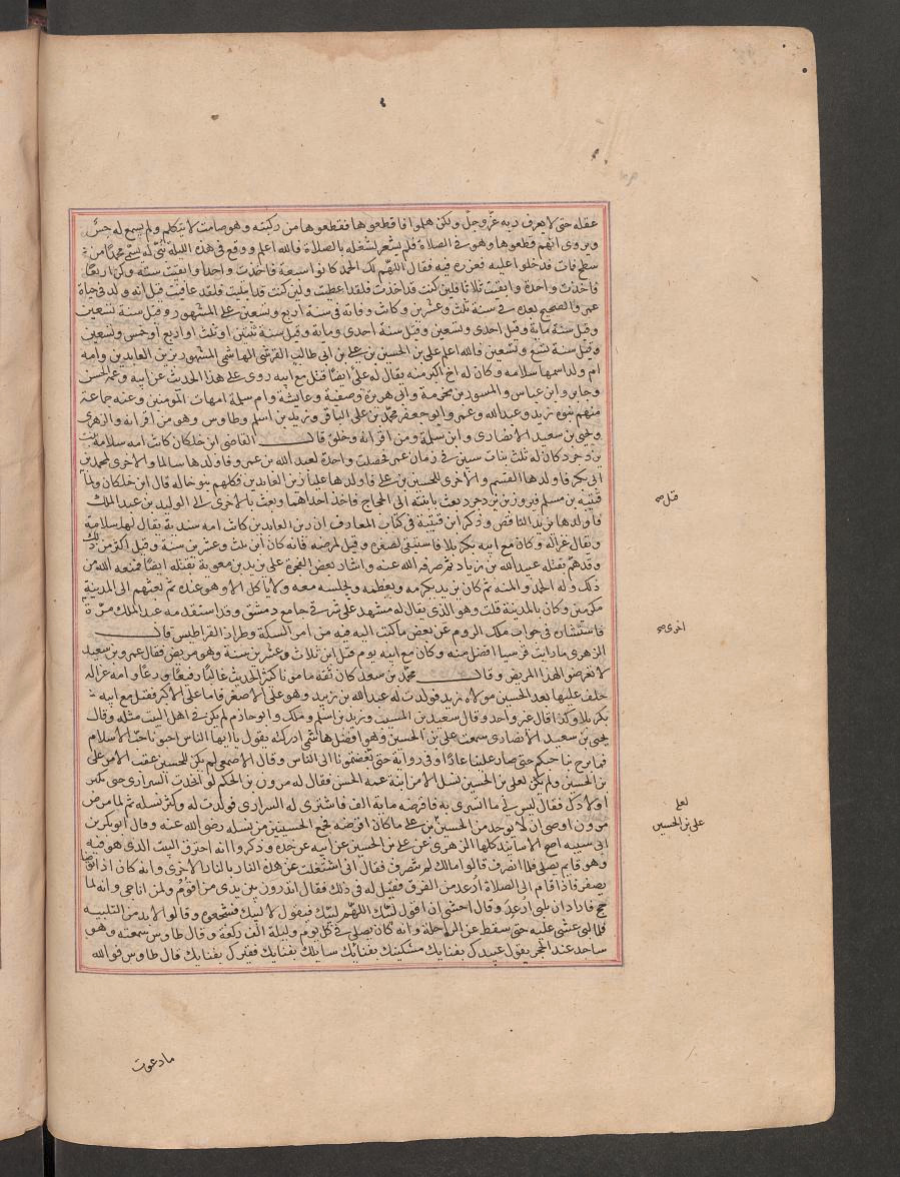 عقله حتى لا يعرف ربه عز وجل ولكن هلموا فاقطعوها فقطعوها من ركبته وهو صامت لا يتكلم ولم يسمع له حس
ويروى انهم قطعوها وهو في الصلاة فلم يشعر لشغله بالصلاة فالله اعلم ووقع في هذه الليلة ابن له يسمى محمدا من
سطح فمات فدخلوا عليه فعزوه فيه فقال اللهم لك الحمد كانوا سبعة فاخذت واحدا وابقيت ستة وكن اربعا
فاخذت واحدة وابقيت ثلاثا فلين كنت قد اخذت فلقد اعطيت ولين كنت قد ابتليت فلقد عافيت قيل انه ولد في حياة
عمر والصحيح بعده في سنة ثلث وعشرين وكانت وفاته في سنة اربع وتسعين على المشهور وقيل سنة تسعين
وقيل سنة ماية وقيل احدى وتسعين وقيل سنة احدى وماية وقيل سنة ثنتين او ثلث او اربع او خمس وتسعين
وقيل سنة تسع وتسعين فالله اعلم علي بن الحسين بن علي بن ابي طالب القرشي الهاشمي المشهور بزين العابدين وامه
ام ولد اسمها سلامه وكان له اخ اكبر منه يقال له علي ايضا قتل مع ابيه روى علي هذا الحديث عن ابيه وعمه الحسن
وجابر وابن عباس والمسور بن مخرمة وابي هريرة وصفية وعايشة وام سلمة امهات المؤمنين وعنه جماعة
منهم بنوه زيد وعبد الله وعمر وابو جعفر محمد بن علي الباقر وزيد بن اسلم وطاوس وهو من اقرانه والزهري
ويحيى بن سعيد الانصاري وابو سلمة ومن اقرانه وخلق قال القاضي ابن خلكان كانت امه سلامة بنت
يزدجرد كان له ثلث بنات سبين في زمان عمر فحصلت واحدة لعبد الله بن عمر فاولدها سالما والاخرى لمحمد بن
ابي بكر فاولدها القسم والاخرى للحسين بن علي فاولدها عليا زين العابدين فكلهم بنو خاله قال ابن خلكان ولما
قتيبة بن مسلم فيروز بن يزدجرد بعث بابنته الى الحجاج فاخذ احداهما وبعث بالاخرى الى الوليد بن عبد الملك
قتل صح
فاولدها يزيد الناقص وذكر ابن قتيبة في كتاب المعارف ان زين العابدين كانت امه سندية يقال لها سلامة
ويقال غزالة وكان مع ابيه بكربلا فاستبقى لصغره وقيل لمرضه فانه كان ابن ثلث وعشرين سنة وقيل اكثر من ذلك
وقد هم بقتله عبيد الله بن زياد ثم صرفه الله عنه واشار بعض الفجرة على يزيد بن معوية بقتله ايضا فمنعه الله من
ذلك وله الحمد والمنه ثم كان يزيد يكرمه ويعظمه ويجلسه معه ولا ياكل الا وهو عنده ثم بعثهم الى المدينة
مكرمين وكان بالمدينة قلت وهو الذي يقال له مشهد علي شرقي جامع دمشق وقد استقدمه عبد الملك مرة
فاستشاره في جواب ملك الروم عن بعض ما كتب اليه فيه من امر السكة وطراز القراطيس قال
اخرى صح
الزهري ما رايت قرشيا افضل منه وكان مع ابيه يوم قتل ابن ثلاث وعشرين سنة وهو مريض فقال عمر بن سعد
لا تعرضوا لهذا المريض وقال محمد بن سعد كان ثقة مامونا كثير الحديث عاليا رفيعا ورعا وامه غزاله
خلف عليها بعد الحسين مولاه زبيد فولدت له عبد الله بن زبيد وهو علي الاصغر فاما علي الاكبر فقتل مع ابيه
بكربلا وكذا قال غير واحد وقال سعيد بن المسيب وزيد بن اسلم وملك وابو حازم لم يكن في اهل البيت مثله وقال
يحيى بن سعيد الانصاري سمعت علي بن الحسين وهو افضل هاشمي ادركته يقول يا ايها الناس احبونا حب الاسلام
فما برح بنا حبكم حتى صار علينا عارا وفي رواية حتى بغضتمونا الى الناس وقال الاصمعي لم يكن للحسين عقب الا من علي
بن الحسين ولم يكن لعلي بن الحسين نسل الا من ابنة عمه الحسن فقال له مرون بن الحكم لو اتخذت السراري حتى يكثر
اولادك فقال ليس لي ما اتسرى به فاقرضه ماية الف فاشترى له السراري فولدت له وكثر نسله ثم لما مرض
مرون اوصى ان لا يوخذ من الحسين بن علي ما كان اقرضه فجميع الحسينيين من نسله رضي الله عنه وقال ابو بكر بن
لعلي
علي بن الحسين
ابي شيبه اصح الاسانيد كلها الزهري عن علي بن الحسين عن ابيه عن جده وذكروا انه احترق البيت الذي هو فيه
وهو قايم يصلي فلما انصرف قالوا مالك لم تنصرف فقال اني اشتغلت عن هذه النار بالنار الاخرى وانه كان اذا توضا
يصفر فاذا قام الى الصلاة ارعد من الفرق فقيل له في ذلك فقال اتدرون بين يدي من اقوم ولمن اناجي وانه لما
حج فاراد ان يلبي ارعد وقال اخشى ان اقول لبيك اللهم لبيك فيقول لا لبيك فشجعوه وقالوا لا بد من التلبيه
فلما لبى غشي عليه حتى سقط عن الراحلة وانه كان يصلي في كل يوم وليلة الف ركعة وقال طاوس سمعته وهو
ساجد عند الحجر يقول عبيدك بفنايك مسكينك بفنايك سايلك بفنايك فقيرك بفنايك قال طاوس فوالله
ما دعوت